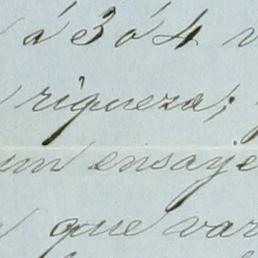 á 3 ó 4
riqueza;
un ensaye
que var